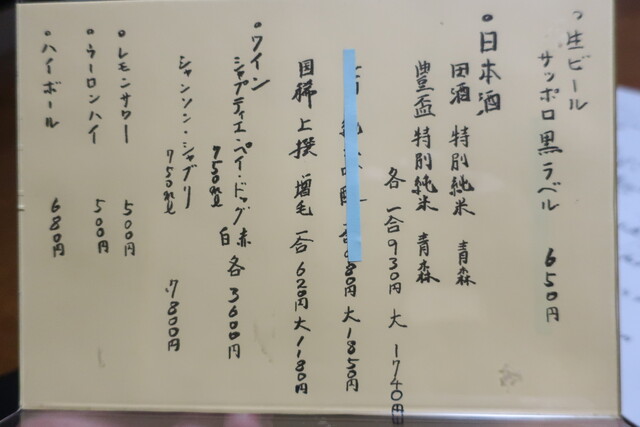 ・生ビール
サッポロ黒ラベル 650円
・日本酒
田酒 特別純米 青森
豊盃 特別純米 青森
各 一合930円 大 1740円
80円 大1850円
国稀 上撰 増毛 一合620円 大1180円
・ワイン
シャプティエ・ペイ・ドック 赤
750ml 白 各 3600円
シャンソン・シャブリ
750ml 7800円
・レモンサワー 500円
・ウーロンハイ 500円
・ハイボール 680円